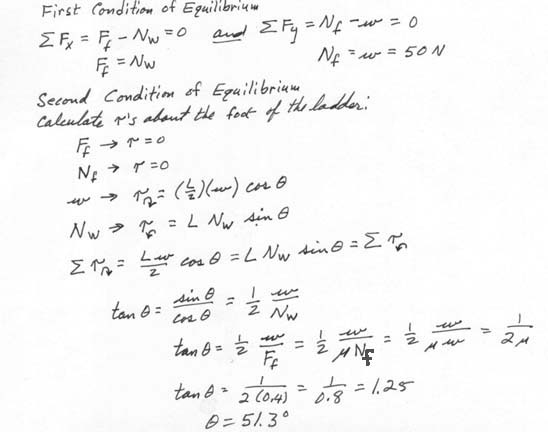 First Condition of Equilibrium
ΣFx = Ff - Nw = 0 and ΣFy = Nf - w = 0
Ff = Nw Nf = w = 50 N
Second Condition of Equilibrium
Calculate τ's about the foot of the ladder:
Ff → τ = 0
Nf → τ = 0
w → τ↻ = (L/2)(w) cos θ
Nw → τ↺ = L Nw sin θ
Στ↻ = Lw/2 cos θ = L Nw sin θ = Στ↺
tan θ = sin θ/cos θ = 1/2 w/Nw
tan θ = 1/2 w/Ff = 1/2 w/μNf = 1/2 w/μw = 1/2μ
tan θ = 1/2(0.4) = 1/0.8 = 1.25
θ = 51.3°